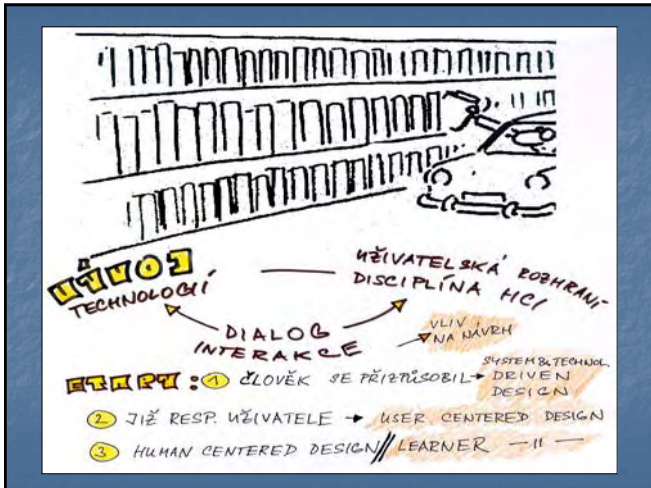 VÝVOJ
TECHNOLOGIÍ
UŽIVATELSKÁ ROZHRANÍ
DISCIPLÍNA HCI
DIALOG
INTERAKCE
VLIV
NA NÁVRH
ETAPY: 1 ČLOVĚK SE PŘIZPŮSOBIL → SYSTEM & TECHNOL.
DRIVEN
DESIGN
2 JIŽ RESP. UŽIVATELE → USER CENTERED DESIGN
3 HUMAN CENTERED DESIGN // LEARNER —〃—